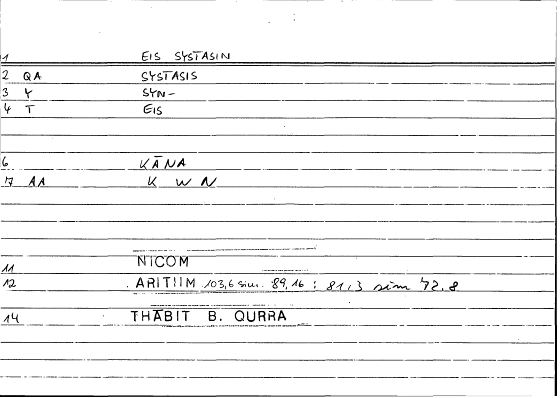 1 EIS SYSTASIN
2 QA SYSTASIS
3 Y SYN-
4 T EIS
6 KĀNA
7 AA K W N
11 NICOM
12 ARITIIM 103,6 sim. 89,16 : 81,3 sim 72.8
14 THĀBIT B. QURRA